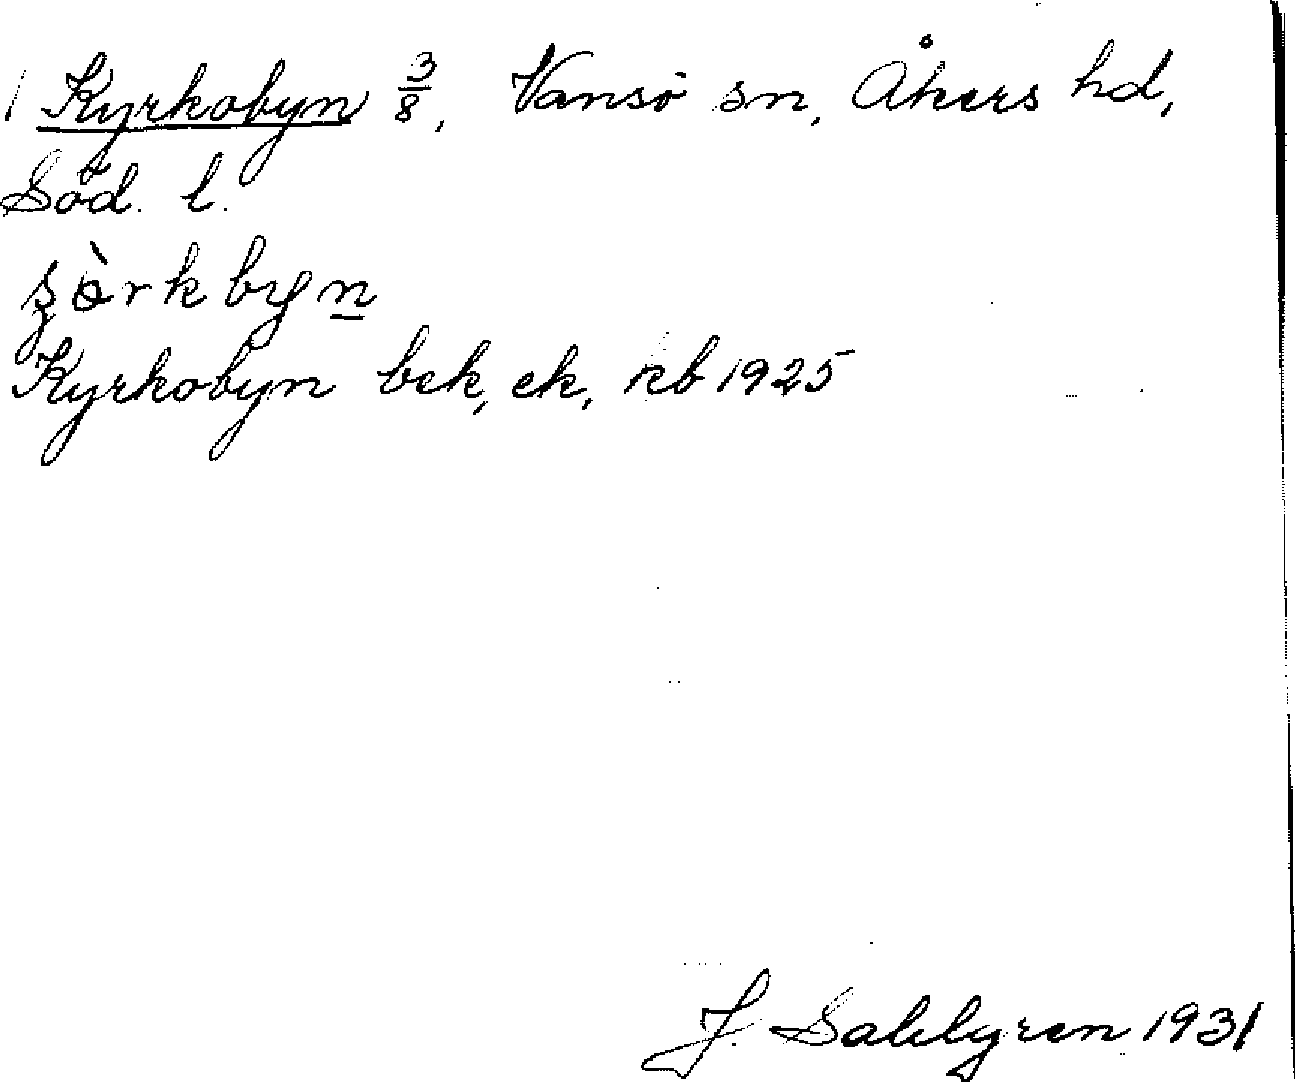 1 Kyrkobyn 3/8, Vansö sn, Åkers hd,
Söd. l.
Kyrkobyn bek, ek, kb 1925
J. Sahlgren 1931